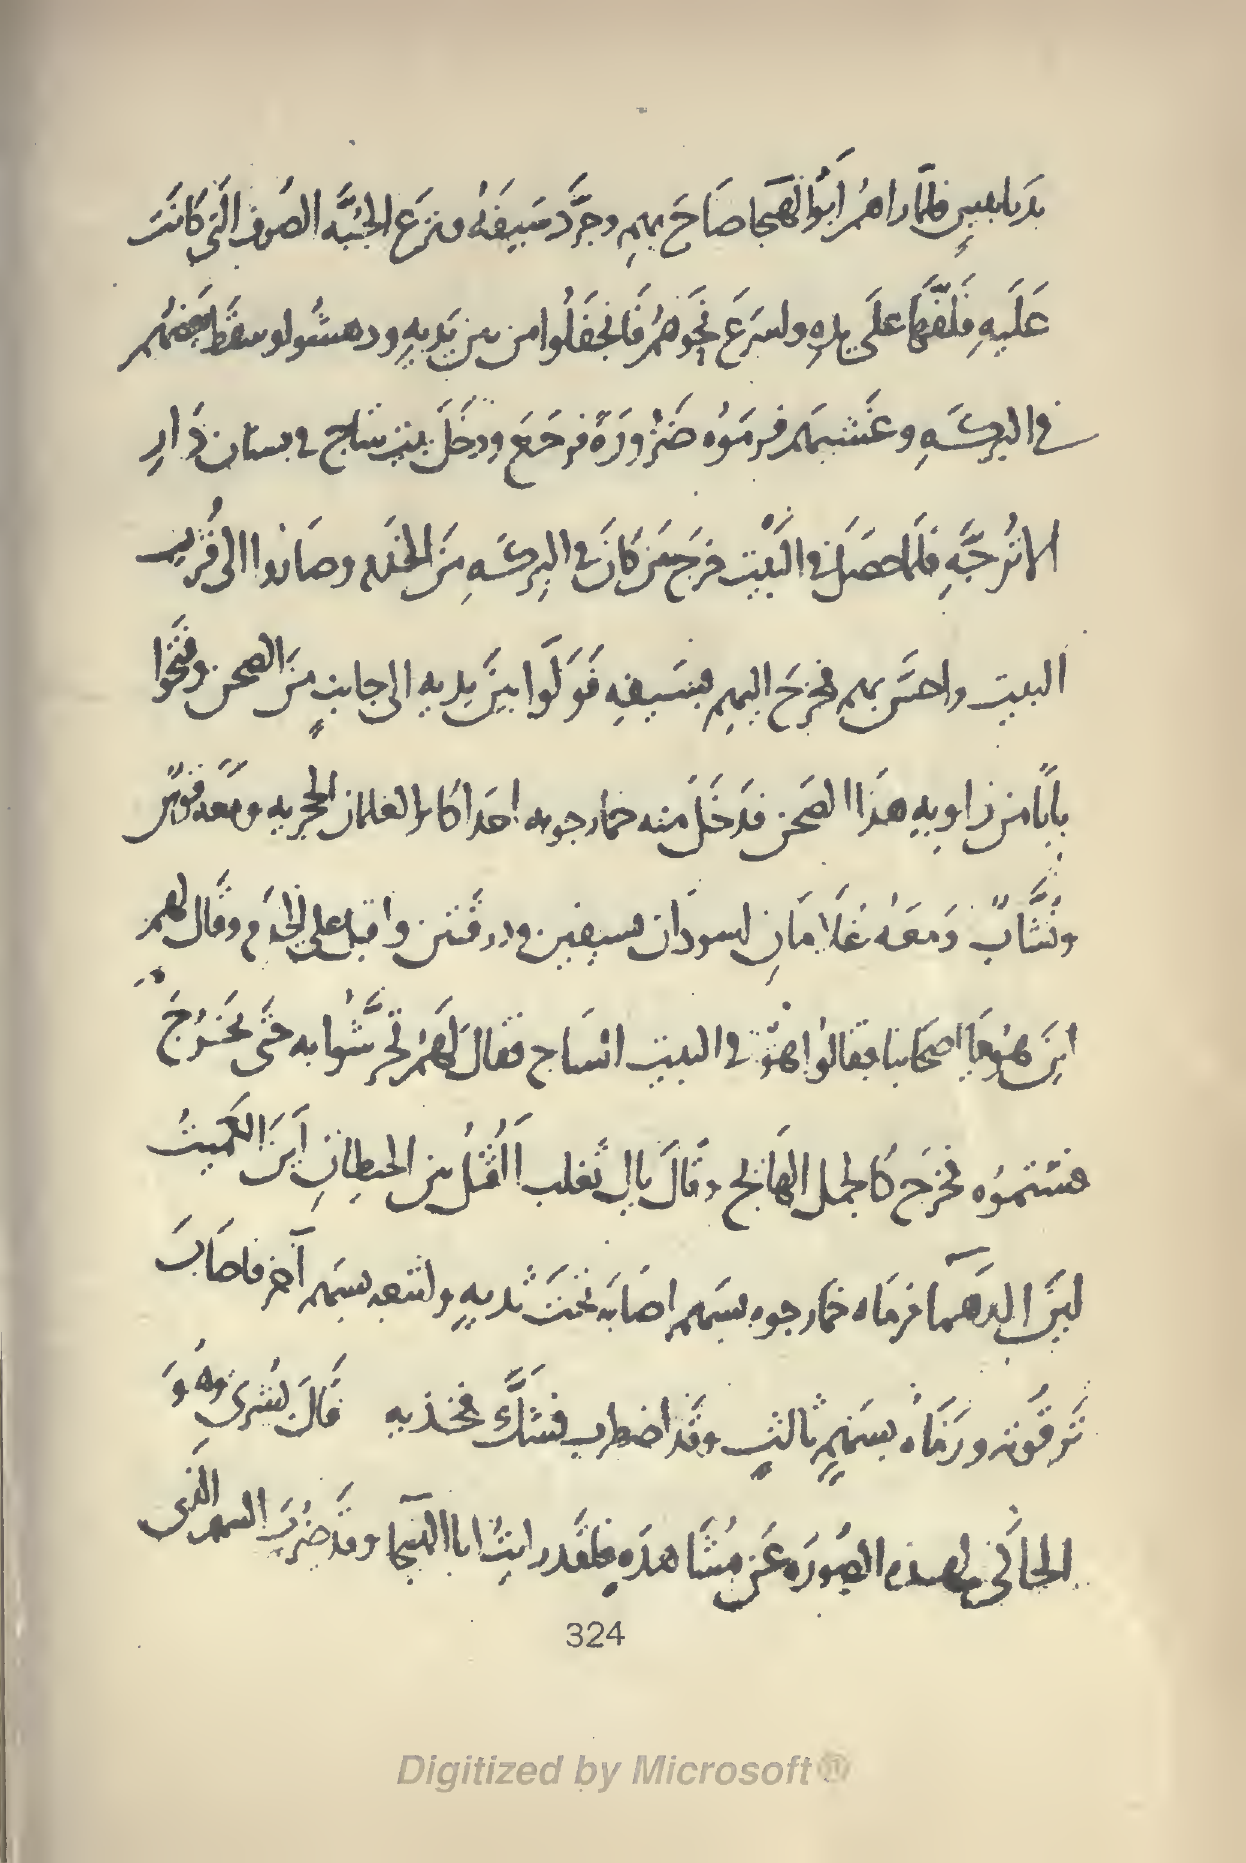 بدبابيسٍ فلمّا راهُم اَبُوا الهَيجا صَاحَ بهِم وجرَّد سَيفَهُ ونزَع الجُبَّه الصُوف التَى كَانَت
عَلَيهِ فَلَفَّهَا علَى يدِهِ واسرَعَ نحوَهُم فَانجَفَلُوا من بين يَدَيهِ ودهشُوا وسقَطَ بعضُهُم
في البركَهِ وغَشيَهم فرمَوه ضَرُورَةً فرجَعَ ودخَلَ بيت ساج في بستان دَارِ
الاترُجَّهِ فلمَّا حصَلَ في البَيْت خرَجَ مَن كَانَ في البِركَهِ مِنَ الخدم وصَاروا الى قُربِ
البيت واحسَّ بهم فخرجَ اليهِم بسَيفِه فَوَلَّوا بينَ يديه الى جانبٍ منَ الصحن وفَتَحُوا
بابًا من زاويهِ هذَا الصَحن فدَخَلَ منه خمارجويه احدَ اكابر الغلمان الحجريه ومَعه قوسٌ
ونُشَّابٌ وَمَعَهُ غُلَامَانِ اسودَان بسيفين ودرقتين واقبل على الخدَمِ وقَال لهم
اَينَ هُوَ يَا اصحَابنا فقالوُا هُوَ في البيت السَاج فقالَ لَهَمُ تحرَّشُوا به حَتَّى يَخرُجَ
فشتمُوه فخرَجَ كَالجمل الهَائج وقَالَ يال تغلب أَأُقتَلُ بين الحيطَانِ أينَ الكُمَيتُ
اينَ الدَهمَآ فرمَاه خمارجويه بسَهم اصَابَه تحتَ ثديهِ واتبعه بسَهم آخر فاصَابَ
تَرقُوته ورَمَاهُ بسَهمٍ ثالثٍ وقد اضطرب فشكَّ فخذيه قَالَ بُشرَى وهُوَ
الحاكَى لهذه الصُورَه عَن مُشَاهدَهٍ فلقَد رايتُ ابا الهيجآ وقَد ضرَبَ السهم الذَى
324
Digitized by Microsoft®